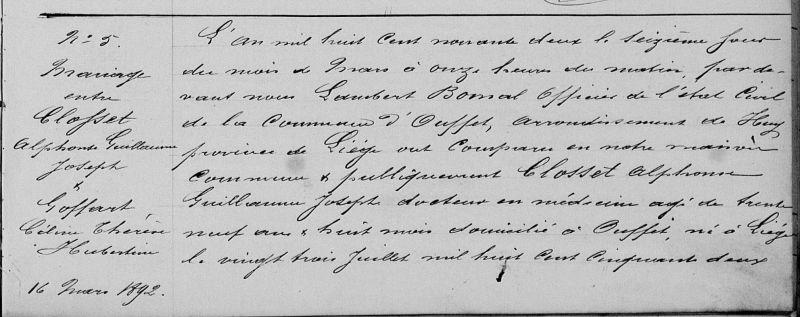 No 5.
Mariage
entre
Closset
Alphonse Guillaume
Joseph
&
Goffart
Céline Thérèse
Hubertine
16 Mars 1892.
L'An mil huit cent nonante deux le seizième jour
du mois de Mars à onze heures du matin, par de-
vant nous Lambert Bonsal Officier de l'état Civil
de la Commune d'Ouffet, arrondissement de Huy
province de Liége ont comparu en notre maison
Commune & publiquement Closset Alphonse
Guillaume Joseph docteur en médecine agé de trente
neuf ans & huit mois domicilié à Ouffet, né à Liége
le vingt trois Juillet mil huit cent cinquante deux